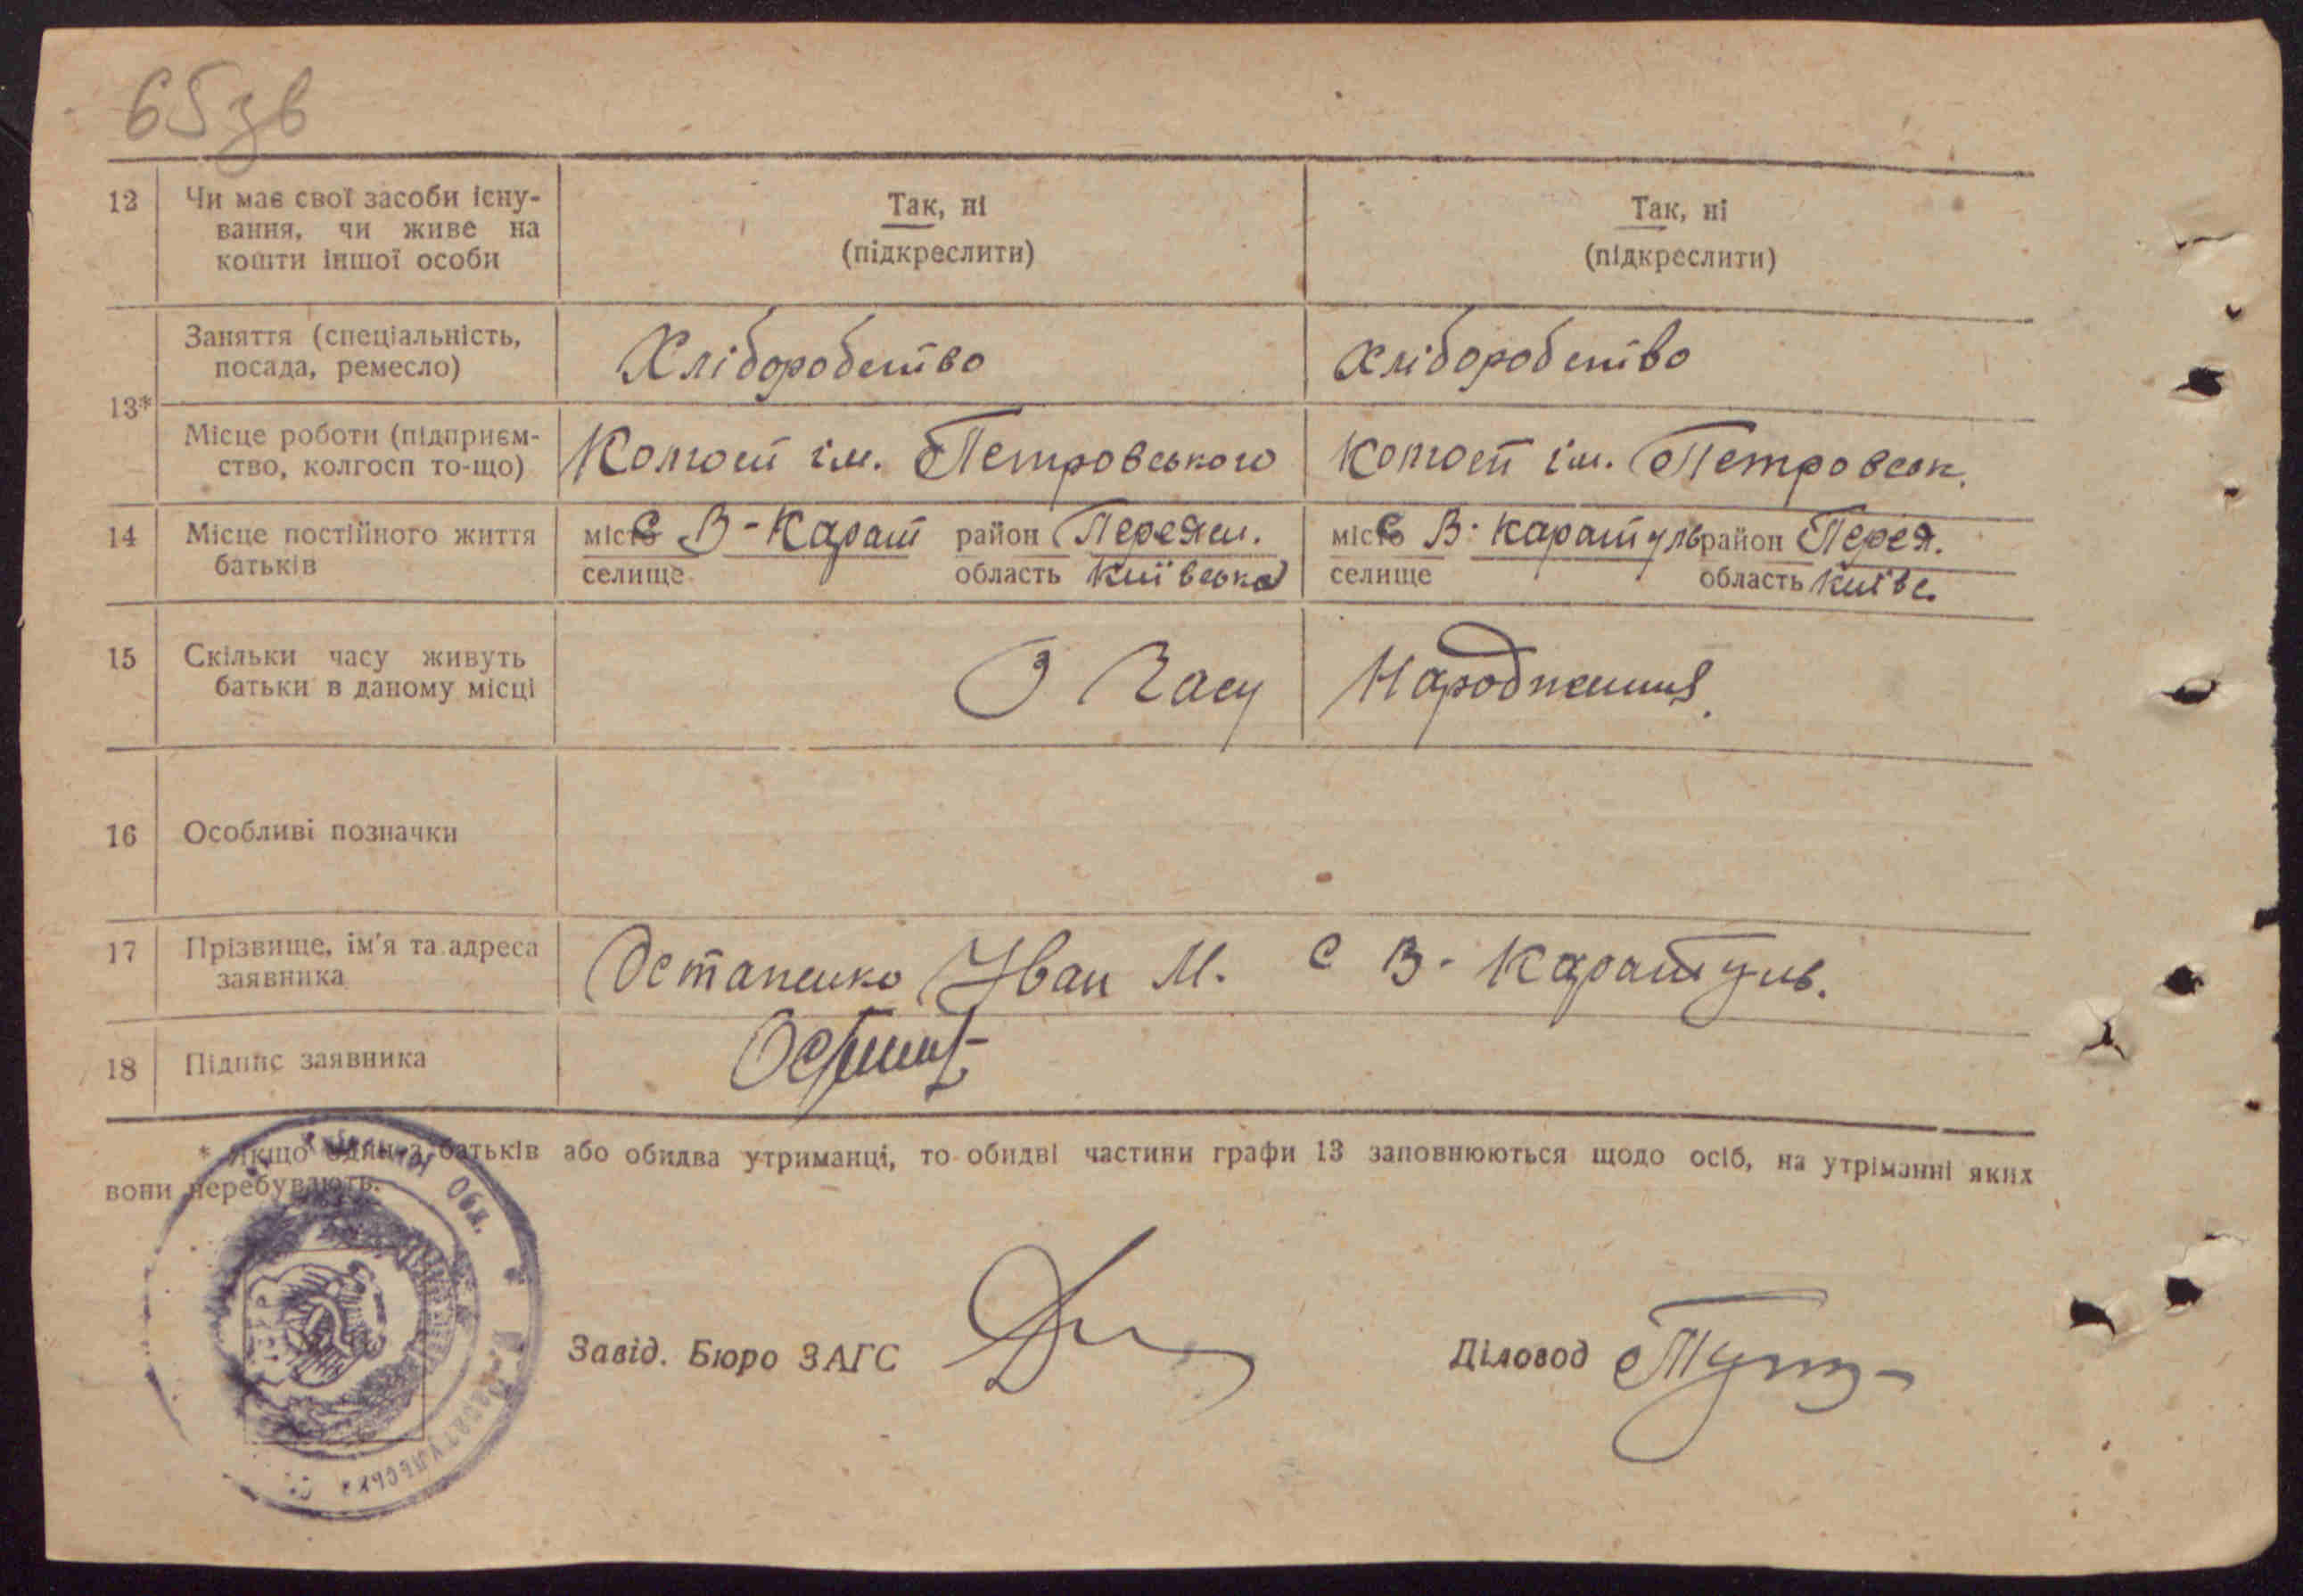 65зв
12 Чи має свої засоби існу-
вання, чи живе на
кошти іншої особи
Так, ні
(підкреслити)
Так, ні
(підкреслити)
13*
Заняття (спеціальність,
посада, ремесло)
Хліборобство
Хліборобство
Місце роботи (підприєм-
ство, колгосп то-що)
ім. Петровського
ім. Петровськ.
14 Місце постійного життя
батьків
місто с В-Карат район Переясл.
селище область Київська
місто с В. Каратуль район Перея.
селище область Київс.
15 Скільки часу живуть
батьки в даному місці
З Часу Народження.
16 Особливі позначки
17 Прізвище, ім'я та адреса
заявника
Остапенко Іван М. с В-Каратуль.
18 Підпис заявника
* Якщо один з батьків або обидва утриманці, то обидві частини графи 13 заповнюються щодо осіб, на утріманні яких
вони перебувають.
Обл.
Каратульська
Завід. Бюро ЗАГС
Діловод